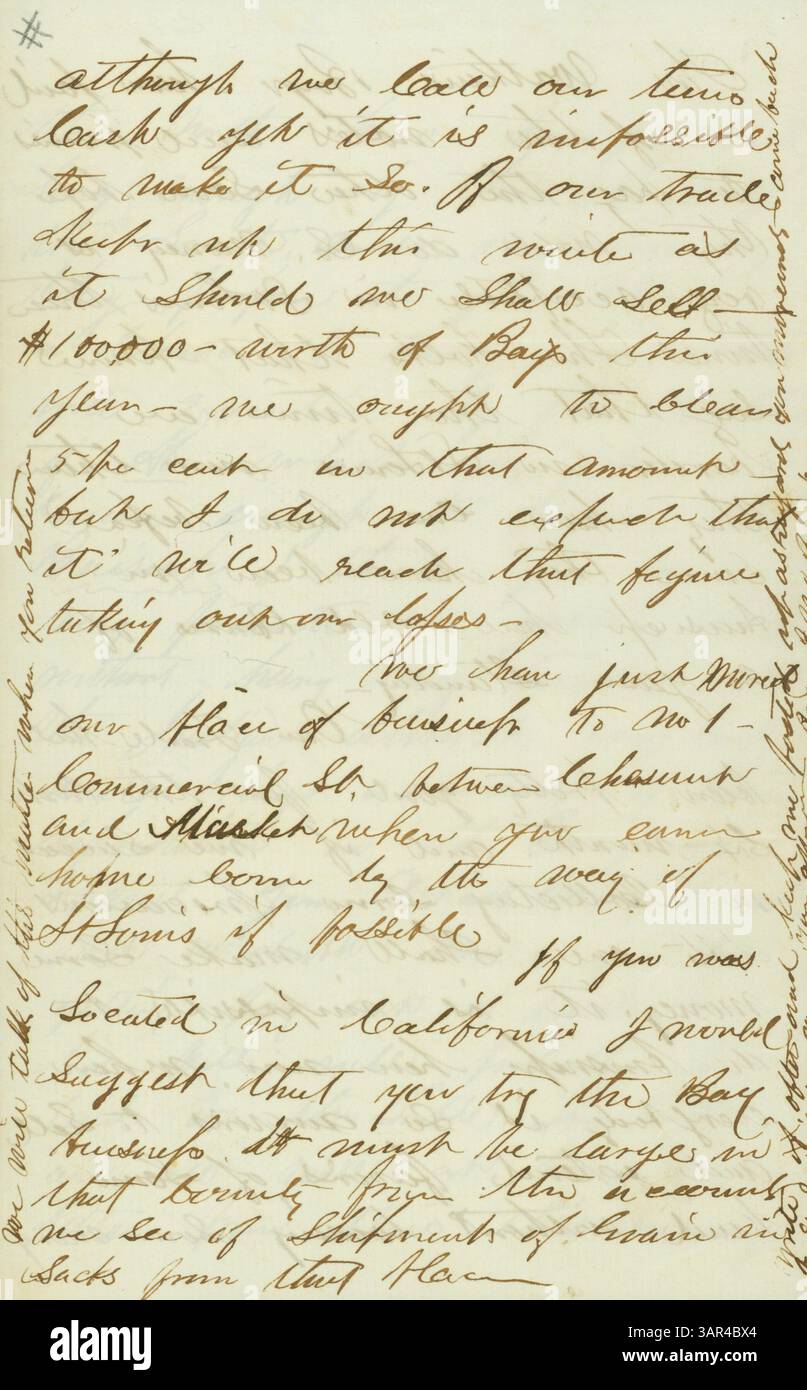 #
although we Call our terms
Cash yet it is impossible
to make it So. If our trade
Keeps up this winter as
it Should we Shall Sell –
$100,000 – worth of Bags this
Year – we ought to Clear
5 per cent on that amount
but I do not expect that
it will reach that figure
taking out our losses –
We have just Moved
our place of business to No 1 –
Commercial St. between Chesnut
and Market when you come
home come by the way of
St Louis if possible
If you was
Located in California I would
Suggest that you try the Bag
business. It must be large in
that County from the accounts
we see of Shipments of Grain in
Sacks from that place
we will talk of this matter when you return
Write often and keep me posted not as regard your movements
alamy
Image ID: 3AR4BX4
www.alamy.com